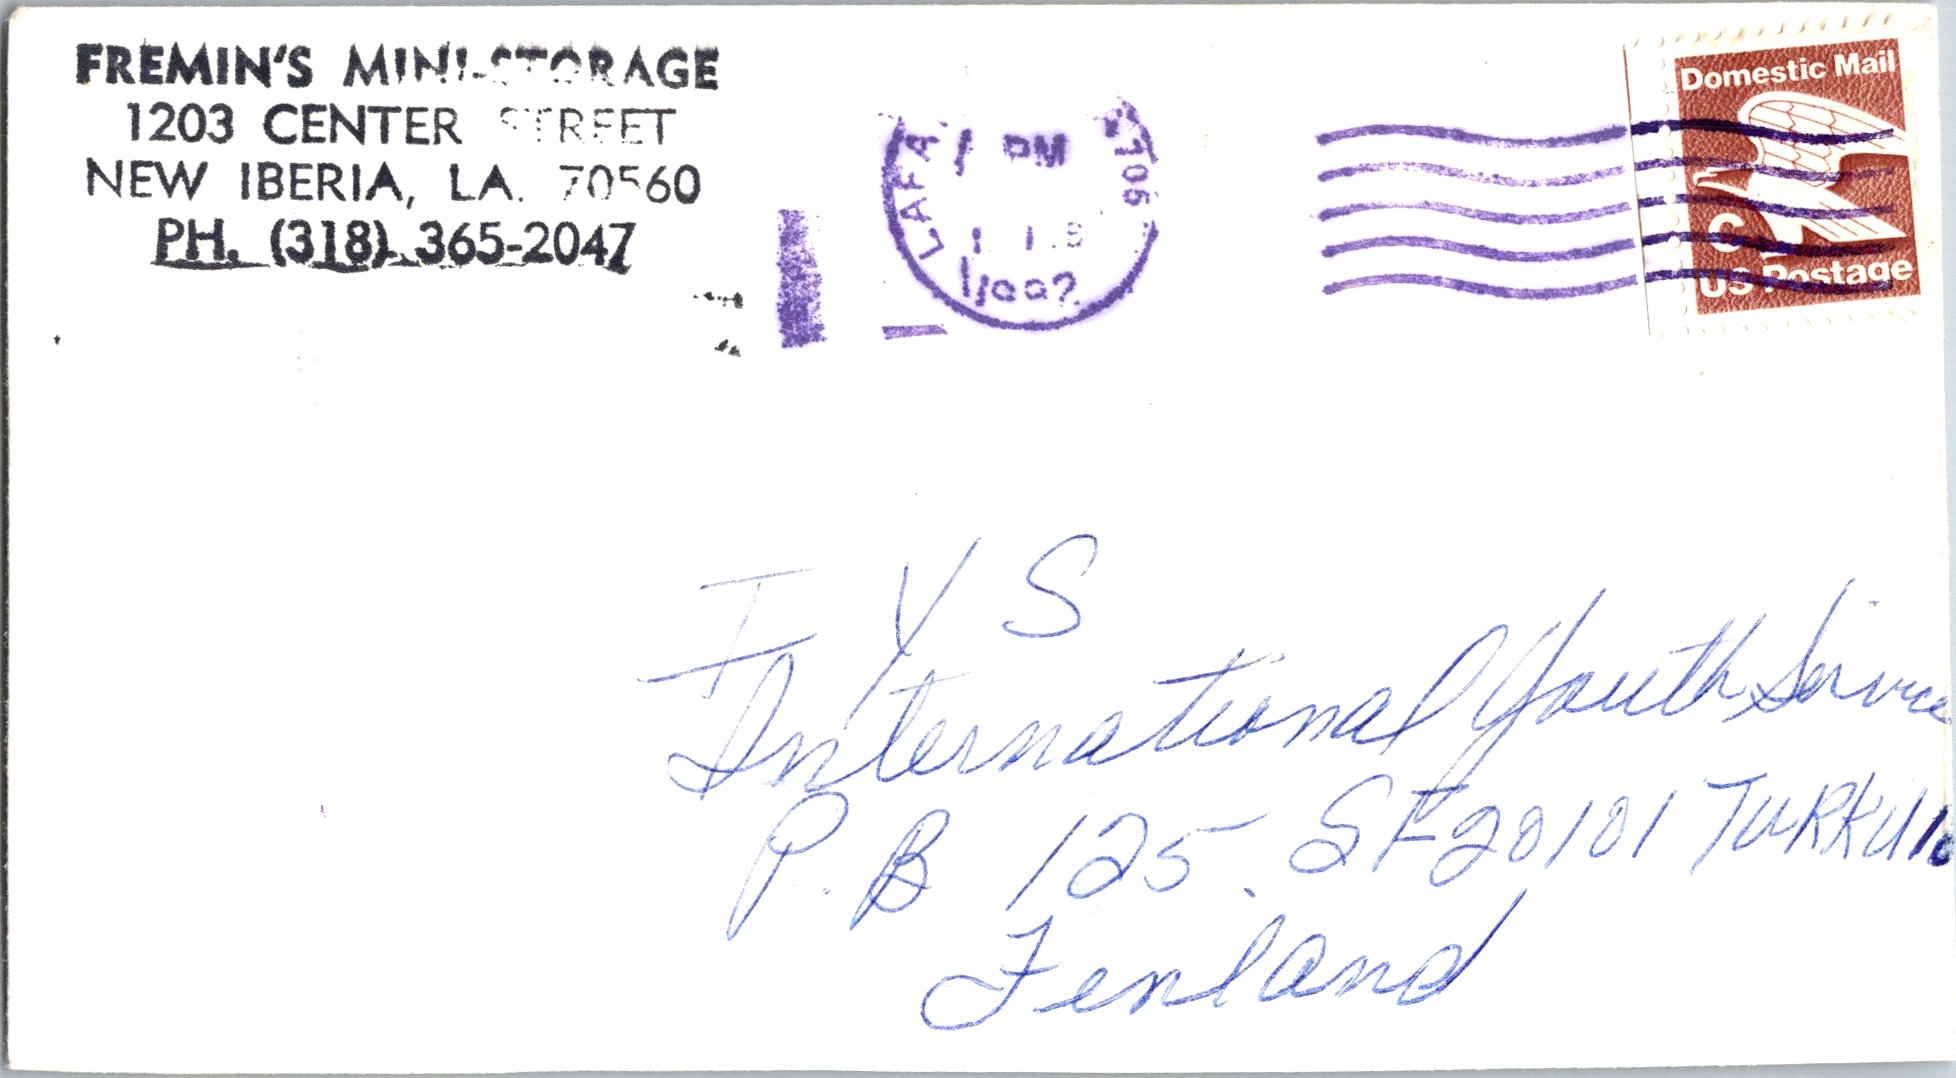 FREMIN'S MINI-STORAGE
1203 CENTER STREET
NEW IBERIA, LA. 70560
PH. (318) 365-2047
LAFA
PM
705
1982
Domestic Mail
C
US Postage
I Y S
International Youth Service
P.B 125. SF20101 TURKU 10
Fenland